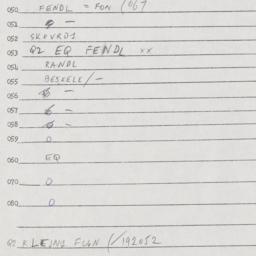 050 FENDL = FON (067
051 ø —
052 SKOVRD1
053 Q2 EQ FENDL xx
054 RANDL
055 BESKELE/—
056 ø —
057 ø —
058 ø —
059 0
060 EQ
070 0
080 0
Q2 KLEIN1 FLGN (/192052